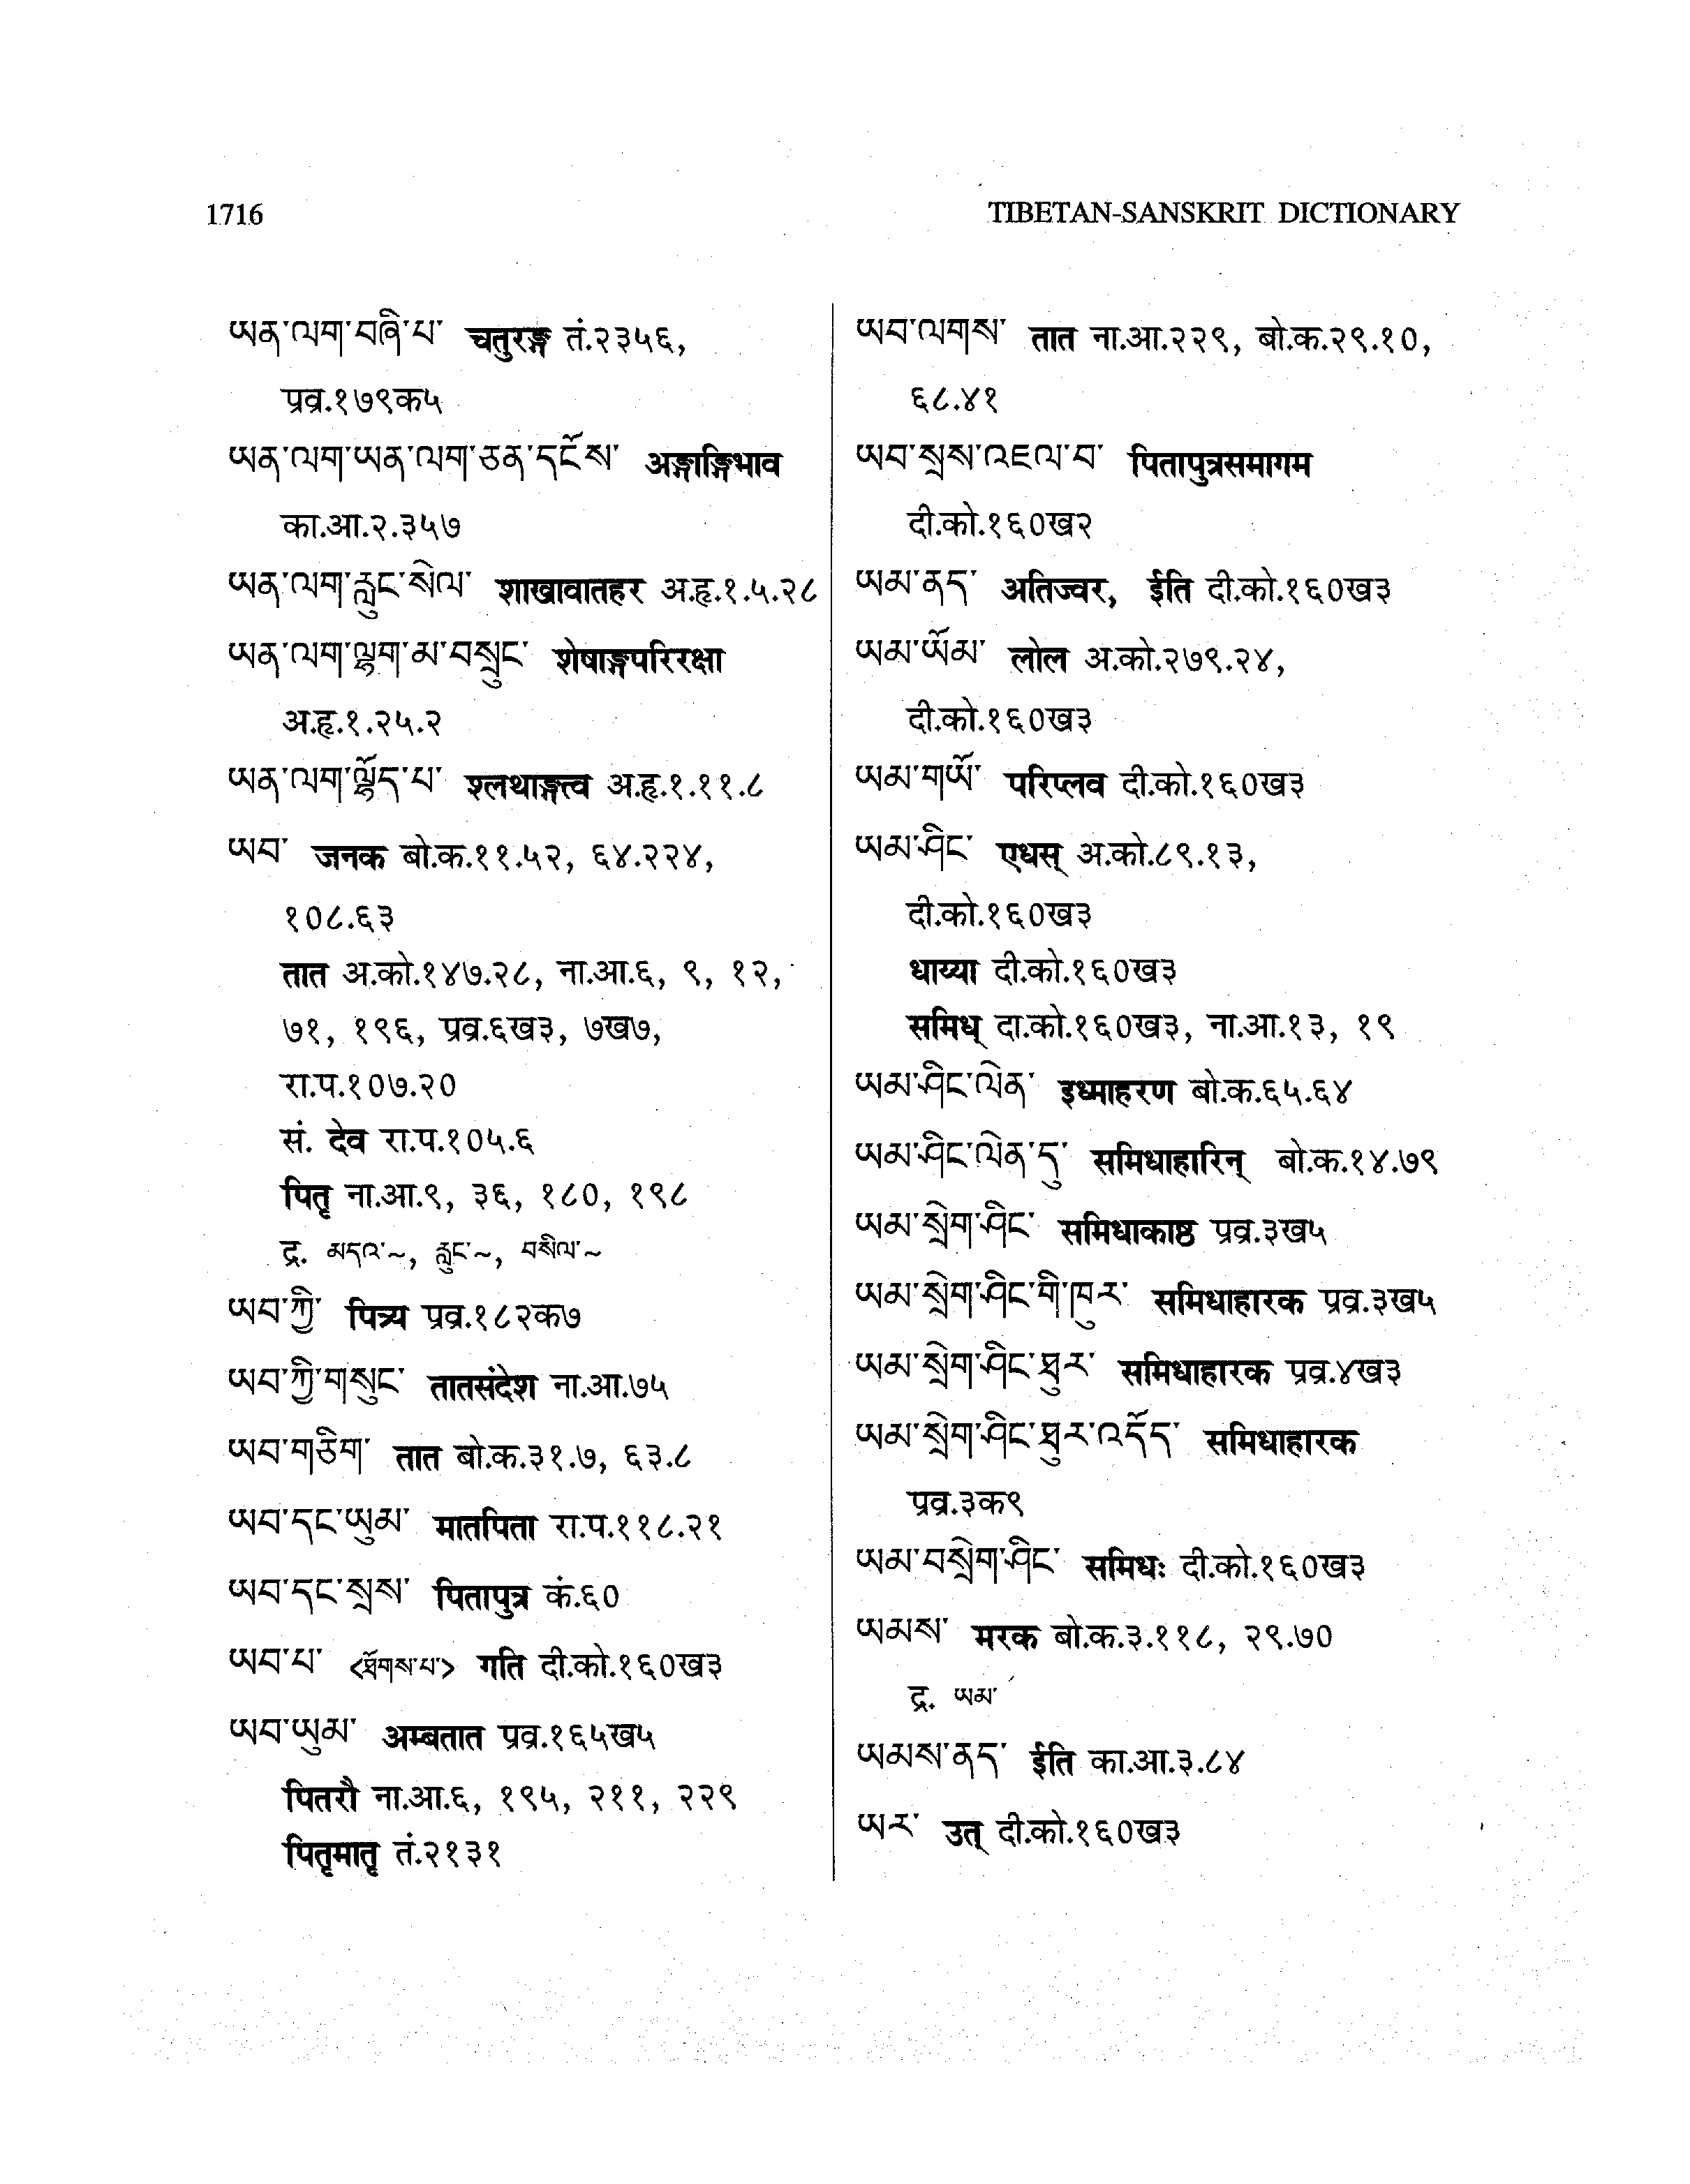 1716
TIBETAN-SANSKRIT DICTIONARY
ཡན་ལག་བཞི་པ་ चतुरङ्ग तं.२३५६,
प्रव्र.१७९क५
ཡན་ལག་ཡན་ལག་ཅན་དངོས་ अङ्गाङ्गिभाव
का.आ.२.३५७
ཡན་ལག་རླུང་སེལ་ शाखावातहर अ.हृ.१.५.२८
ཡན་ལག་ལྷག་མ་བསྲུང་ शेषाङ्गपरिरक्षा
अ.हृ.१.२५.२
ཡན་ལག་ལྷོད་པ་ श्लथाङ्गत्त्व अ.हृ.१.११.८
ཡབ་ जनक बो.क.११.५२, ६४.२२४,
१०८.६३
तात अ.को.१४७.२८, ना.आ.६, ९, १२,
७१, १९६, प्रव्र.६ख३, ७ख७,
रा.प.१०७.२०
सं. देव रा.प.१०५.६
पितृ ना.आ.९, ३६, १८०, १९८
द्र. མདའ་~, རླུང་~, བསིལ་~
ཡབ་ཀྱི་ पित्र्य प्रव्र.१८२क७
ཡབ་ཀྱི་གསུང་ तातसंदेश ना.आ.७५
ཡབ་གཅིག་ तात बो.क.३१.७, ६३.८
ཡབ་དང་ཡུམ་ मातपिता रा.प.११८.२१
ཡབ་དང་སྲས་ पितापुत्र कं.६०
ཡབ་པ་ <ཐོགས་པ་> गति दी.को.१६०ख३
ཡབ་ཡུམ་ अम्बतात प्रव्र.१६५ख५
पितरौ ना.आ.६, १९५, २११, २२९
पितृमातृ तं.२१३१
ཡབ་ལགས་ तात ना.आ.२२९, बो.क.२९.१०,
६८.४१
ཡབ་སྲས་འཇལ་བ་ पितापुत्रसमागम
दी.को.१६०ख२
ཡམ་ནད་ अतिज्वर, ईति दी.को.१६०ख३
ཡམ་ཡོམ་ लोल अ.को.२७९.२४,
दी.को.१६०ख३
ཡམ་གཡོ་ परिप्लव दी.को.१६०ख३
ཡམ་ཤིང་ एधस् अ.को.८९.१३,
दी.को.१६०ख३
धाय्या दी.को.१६०ख३
समिध् दा.को.१६०ख३, ना.आ.१३, १९
ཡམ་ཤིང་ལེན་ इध्माहरण बो.क.६५.६४
ཡམ་ཤིང་ལེན་དུ་ समिधाहारिन् बो.क.१४.७९
ཡམ་སྲེག་ཤིང་ समिधाकाष्ठ प्रव्र.३ख५
ཡམ་སྲེག་ཤིང་གི་ཁུར་ समिधाहारक प्रव्र.३ख५
ཡམ་སྲེག་ཤིང་ཐུར་ समिधाहारक प्रव्र.४ख३
ཡམ་སྲེག་ཤིང་ཐུར་འདོད་ समिधाहारक
प्रव्र.३क९
ཡམ་བསྲེག་ཤིང་ समिधः दी.को.१६०ख३
ཡམས་ मरक बो.क.३.११८, २९.७०
द्र. ཡམ་
ཡམས་ནད་ ईति का.आ.३.८४
ཡར་ उत् दी.को.१६०ख३